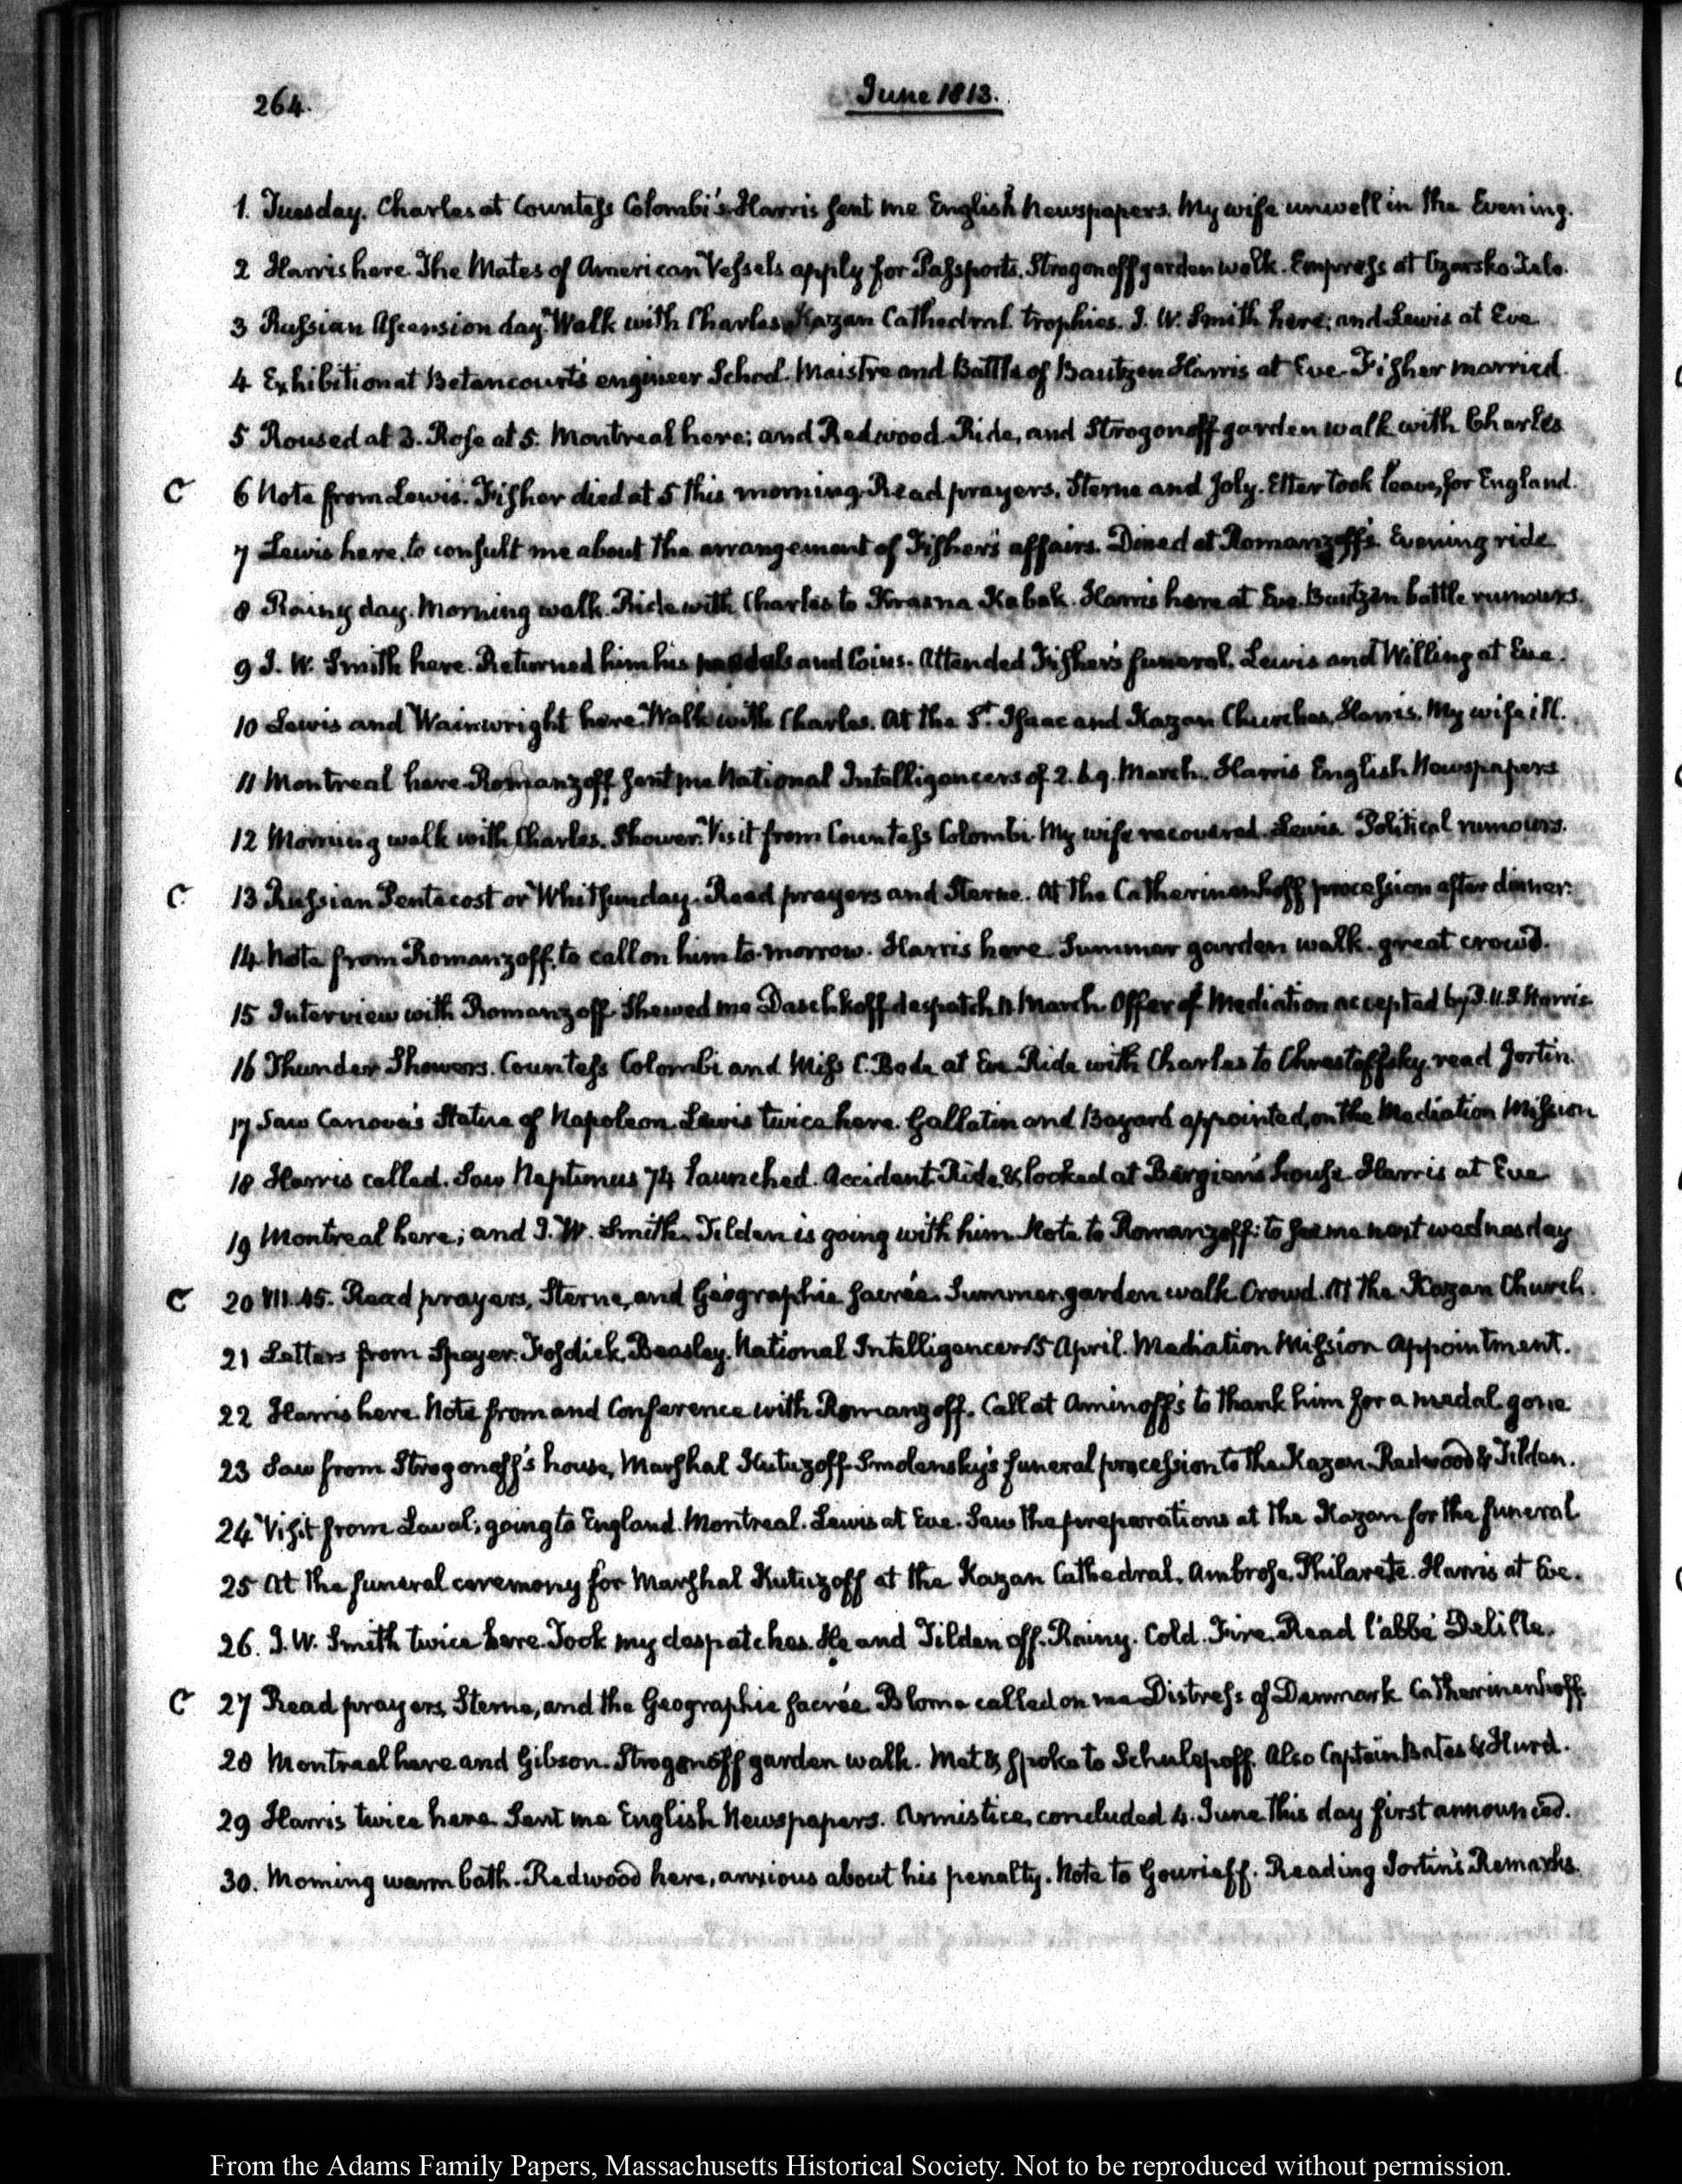 264.
June 1813.
1. Tuesday. Charles at Countess Colombi's. Harris sent me English Newspapers. My wife unwell in the Evening.
2 Harris here. The Mates of American Vessels apply for Passports. Strogonoff garden walk. Empress at Czarsko-Zelo.
3 Russian Ascension day. Walk with Charles. Kazan Cathedral. trophies. J. W. Smith here; and Lewis at Eve
4 Exhibition at Betancourt's engineer School. Maistre and Battle of Bautzen Harris at Eve. Fisher married.
5 Roused at 3. Rose at 5. Montreal here; and Redwood. Ride, and Strogonoff garden walk with Charles
C 6 Note from Lewis. Fisher died at 5 this morning. Read prayers. Sterne and Joly. Etter took leave, for England.
7 Lewis here, to consult me about the arrangement of Fisher's affairs. Dined at Romanzoff's. Evening ride
8 Rainy day. Morning walk. Ride with Charles to Krasna Kabak. Harris here at Eve. Bautzen battle rumours.
9 J. W. Smith here. Returned him his medals and Coins. Attended Fisher's funeral. Lewis and Willing at Eve.
10 Lewis and Wainwright here. Walk with Charles. At the St. Isaac and Kazan Churches, Harris. My wife ill.
11 Montreal here. Romanzoff sent me National Intelligencers of 2. 6. 9. March. Harris English Newspapers
12 Morning walk with Charles. Shower. Visit from Countess Colombi. My wife recovered. Lewis. Political rumours.
C 13 Russian Pentecost or Whitsunday. Read prayers and Sterne. At the Catherinenhoff procession after dinner.
14 Note from Romanzoff, to call on him to-morrow. Harris here. Summer garden walk. great crowd.
15 Interview with Romanzoff. Shewed me Daschkoff despatch March. Offer of Mediation accepted by P. U. S. Harris
16 Thunder Showers. Countess Colombi and Miss C. Bode at Eve Ride with Charles to Chrestoffsky. read Jortin.
17 Saw Canova's Statue of Napoleon. Lewis twice here. Gallatin and Bayard appointed, on the Mediation Mission
18 Harris called. Saw Neptunus 74 launched. Accident. Ride, & looked at house. Harris at Eve
19 Montreal here; and J. W. Smith. Tilden is going with him. Note to Romanzoff: to see me next wednesday
C 20 VII. 45. Read prayers, Sterne, and Géographie sacrée. Summer garden walk Crowd. At the Kazan Church.
21 Letters from Speyer. Fosdick. Beasley. National Intelligencer 15 April. Mediation Mission appointment.
22 Harris here. Note from and Conference with Romanzoff. Call at Aminoff's to thank him for a medal. gone
23 Saw from Strogonoff's house, Marshal Kutuzoff-Smolensky's funeral procession to the Kazan. Redwood & Tilden.
24 Visit from Laval; going to England. Montreal. Lewis at Eve. Saw the preparations at the Kazan for the funeral
25 At the funeral ceremony for Marshal Kutuzoff at the Kazan Cathedral. Ambrose, Philarete. Harris at Eve.
26. J. W. Smith twice here. Took my despatches. He and Tilden off. Rainy. Cold. Fire. Read l'abbé Delille.
C 27 Read prayers, Sterne, and the Geographie sacrée. Blome called on me Distress of Denmark Catherinenhoff.
28 Montreal here and Gibson. Strogonoff garden walk. Met & spoke to Schulepoff. Also Captain Bates & Hurd.
29 Harris twice here. Sent me English Newspapers. Armistice, concluded 4. June this day first announced.
30. Morning warm bath. Redwood here, anxious about his penalty. Note to Gourieff. Reading Jortin's Remarks.
From the Adams Family Papers, Massachusetts Historical Society. Not to be reproduced without permission.